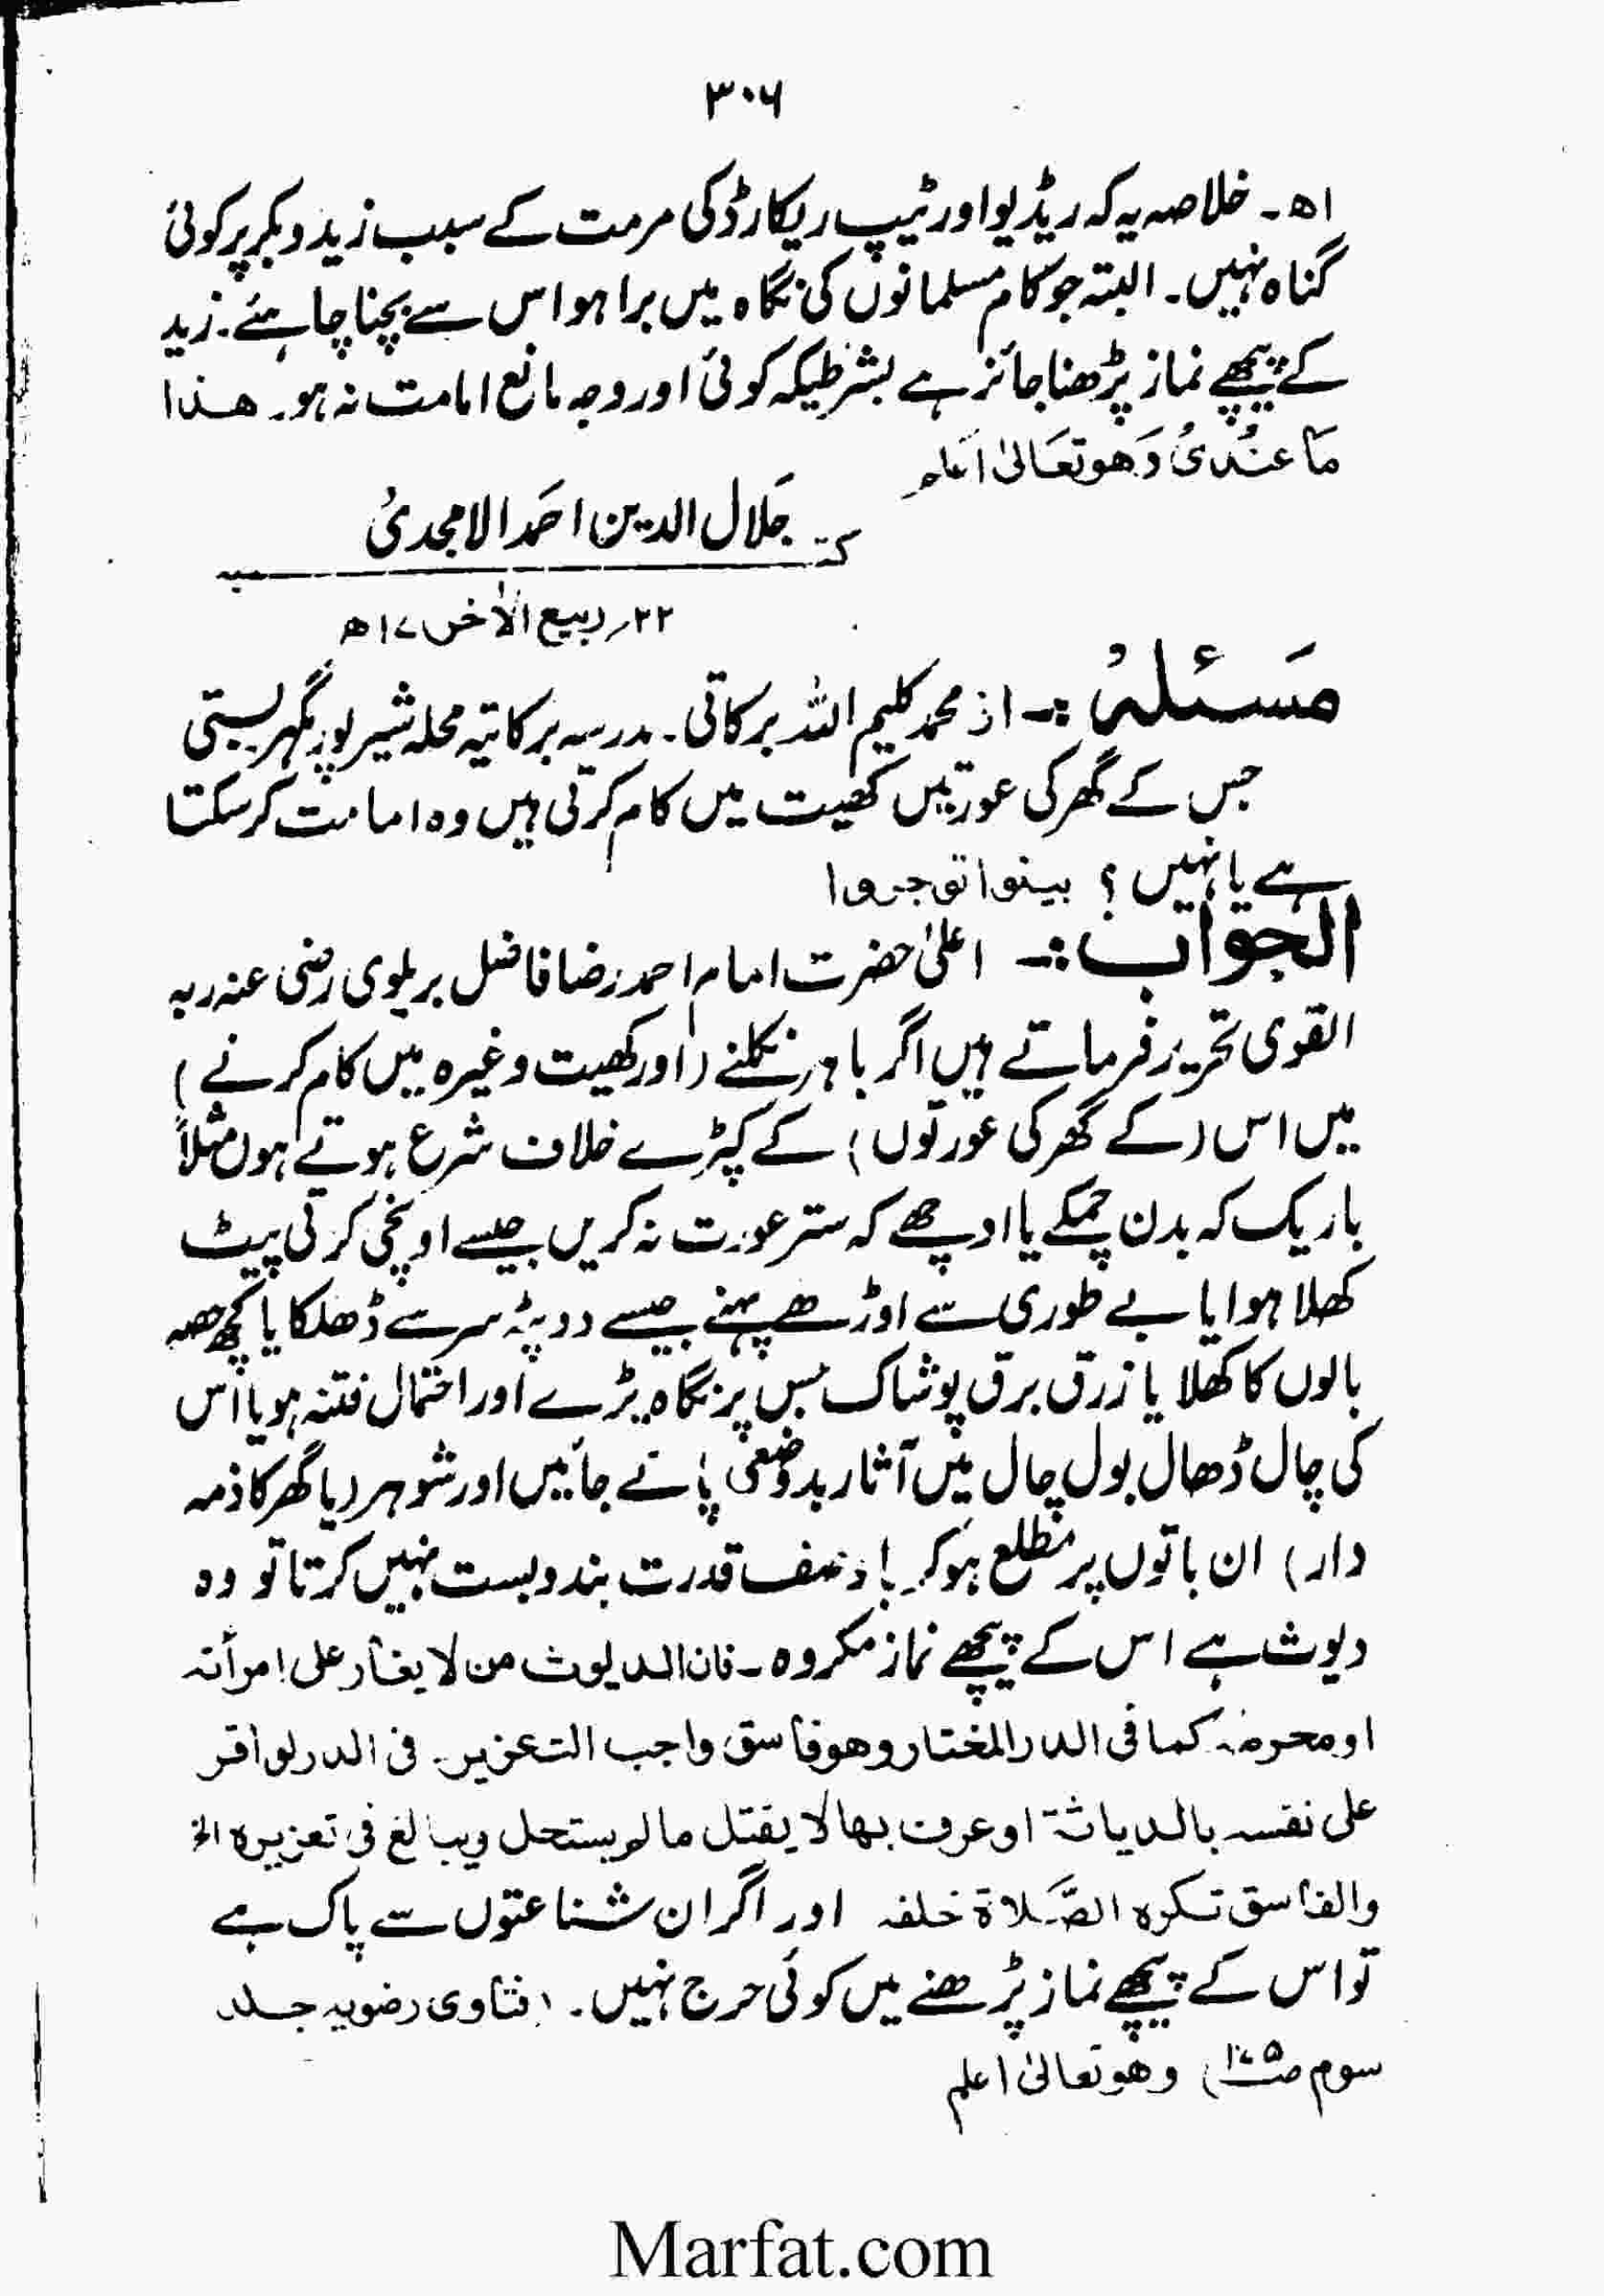 ۳۰۶
اھ۔ خلاصہ یہ کہ ریڈیو اور ٹیپ ریکارڈ کی مرمت کے سبب زید و بکر پر کوئی
گناہ نہیں۔ البتہ جو کام مسلمانوں کی نگاہ میں برا ہو اس سے بچنا چاہئے۔ زید
کے پیچھے نماز پڑھنا جائز ہے بشرطیکہ کوئی اور وجہ مانع امامت نہ ہو۔ ھٰذا
مَا عندیُ وَھو تعَالیٰ اَعلم
کتبہ جَلال الدین احَمد الامجدیُ
۲۲؍ ربیع الاٰخر ۱۷ھ
مَسئلہُ :۔ از محمد کلیم اللہ برکاتی۔ مدرسہ برکاتیہ محلہ شیر پور نگہر بستی
جس کے گھر کی عورتیں کھیت میں کام کرتی ہیں وہ امامت کرسکتا
ہے یا نہیں؟ بینوا توجروا
الجواب :۔ اعلیٰ حضرت امام احمد رضا فاضل بریلوی رضی عنہ ربہ
القوی تحریر فرماتے ہیں اگر باہر نکلنے (اور کھیت وغیرہ میں کام کرنے)
میں اس (کے گھر کی عورتوں) کے کپڑے خلاف شرع ہوتے ہوں مثلاً
باریک کہ بدن چمکے یا اوچھے کہ ستر عورت نہ کریں جیسے اونچی کرتی پیٹ
کھلا ہوا یا بے طوری سے اوڑھے پہنے جیسے دوپٹہ سر سے ڈھلکا یا کچھ حصہ
بالوں کا کھلا یا زرق برق پوشاک جس پر نگاہ پڑے اور احتمال فتنہ ہو یا اُس
کی چال ڈھال بول چال میں آثار بدوضعی پائے جائیں اور شوہر (یا گھر کا ذمہ
دار) ان باتوں پر مطلع ہوکر باوصف قدرت بندوبست نہیں کرتا تو وہ
دیوث ہے اس کے پیچھے نماز مکروہ۔ فان الدیوث من لا یغار علی امرأتہ
او محرمہ کما فی الدر المختار وھو فاسق واجب التعزیر۔ فی الدر لو اقر
علی نفسہ بالدیاثۃ او عرف بھا لا یقتل ما لم یستحل ویبالغ فی تعزیرہ الخ
والفاسق تکرہ الصَّلاۃ خلفہ اور اگر ان شناعتوں سے پاک ہے
تو اس کے پیچھے نماز پڑھنے میں کوئی حرج نہیں۔ (فتاوی رضویہ جلد
سوم صـ۱۷۵) وھو تعالیٰ اعلم
Marfat.com